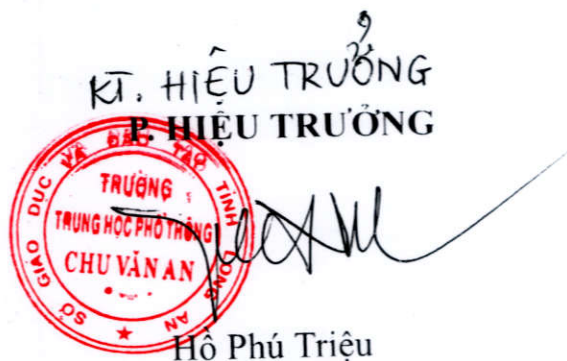 KT. HIỆU TRƯỞNG
P. HIỆU TRƯỞNG
SỞ GIÁO DỤC VÀ ĐÀO TẠO TỈNH LONG AN
TRƯỜNG
TRUNG HỌC PHỔ THÔNG
CHU VĂN AN
Hồ Phú Triệu